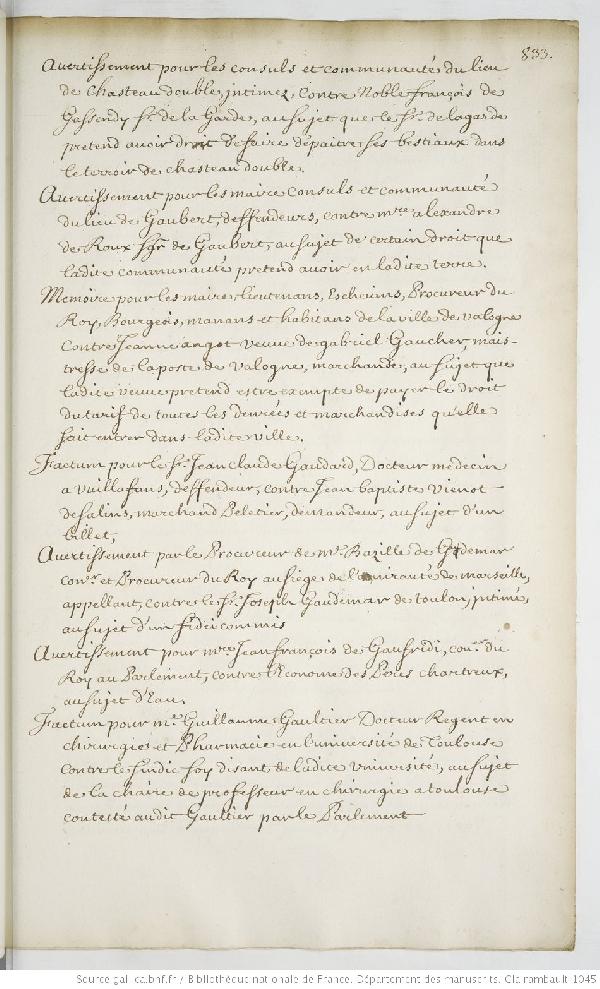 833.
Avertissement pour les consuls et communautés du lieu
de Chasteaudouble, intimez, contre Noble françois de
Gassendy Sr. de la Garde, au sujet que le Sr. de lagarde
pretend avoir droit de faire depaitre ses bestiaux dans
le terroir de chasteaudouble.
Avertissement pour les maire consuls et communauté
du lieu de Gaubert, deffendeurs, contre mre. alexandre
de Roux Sgr. de Gaubert, au sujet de certain droit que
ladite communauté pretend avoir en ladite terre.
Memoire pour les maires, lieutenans, Eschevins, Procureur du
Roy, Bourgeois, manans et habitans de la ville de valogne
contre Jeanne angot veuve de gabriel Gaucher, mais-
tresse de la poste de valogne, marchande, au sujet que
ladite veuve pretend estre exempte de payer le droit
du tarif de toutes les denrées et marchandises qu'elle
fait entrer dans ladite ville.
Factum pour le Sr. Jean Claude Gaudard, Docteur medecin
a vuillafans, deffendeur, contre Jean baptiste vienot
de salins, marchand Peletier, demandeur, au sujet d'un
billet,
Avertissement par le Procureur de mr. Bazille de Gademar
conr. et Procureur du Roy au siege de l'amirauté de marseille,
appellant, contre le Sr. Joseph Gaudemar de toulon, intimé,
au sujet d'un fidei commis
Avertissement pour mre. Jean françois de Gaufridi, conr. du
Roy au Parlement, contre l'Econome des P. Chartreux,
au sujet d'Eau.
Factum pour mr. Guillaume Gaultier Docteur Regent en
chirurgie et Pharmacie en l'université de Toulouse
contre le sindic soy disant de ladite Université, au sujet
de la chaire de professeur en chirurgie a toulouse
contesté audit Gaultier par le Parlement
Source gallica.bnf.fr / Bibliothèque nationale de France. Département des manuscrits. Clairambault 1045